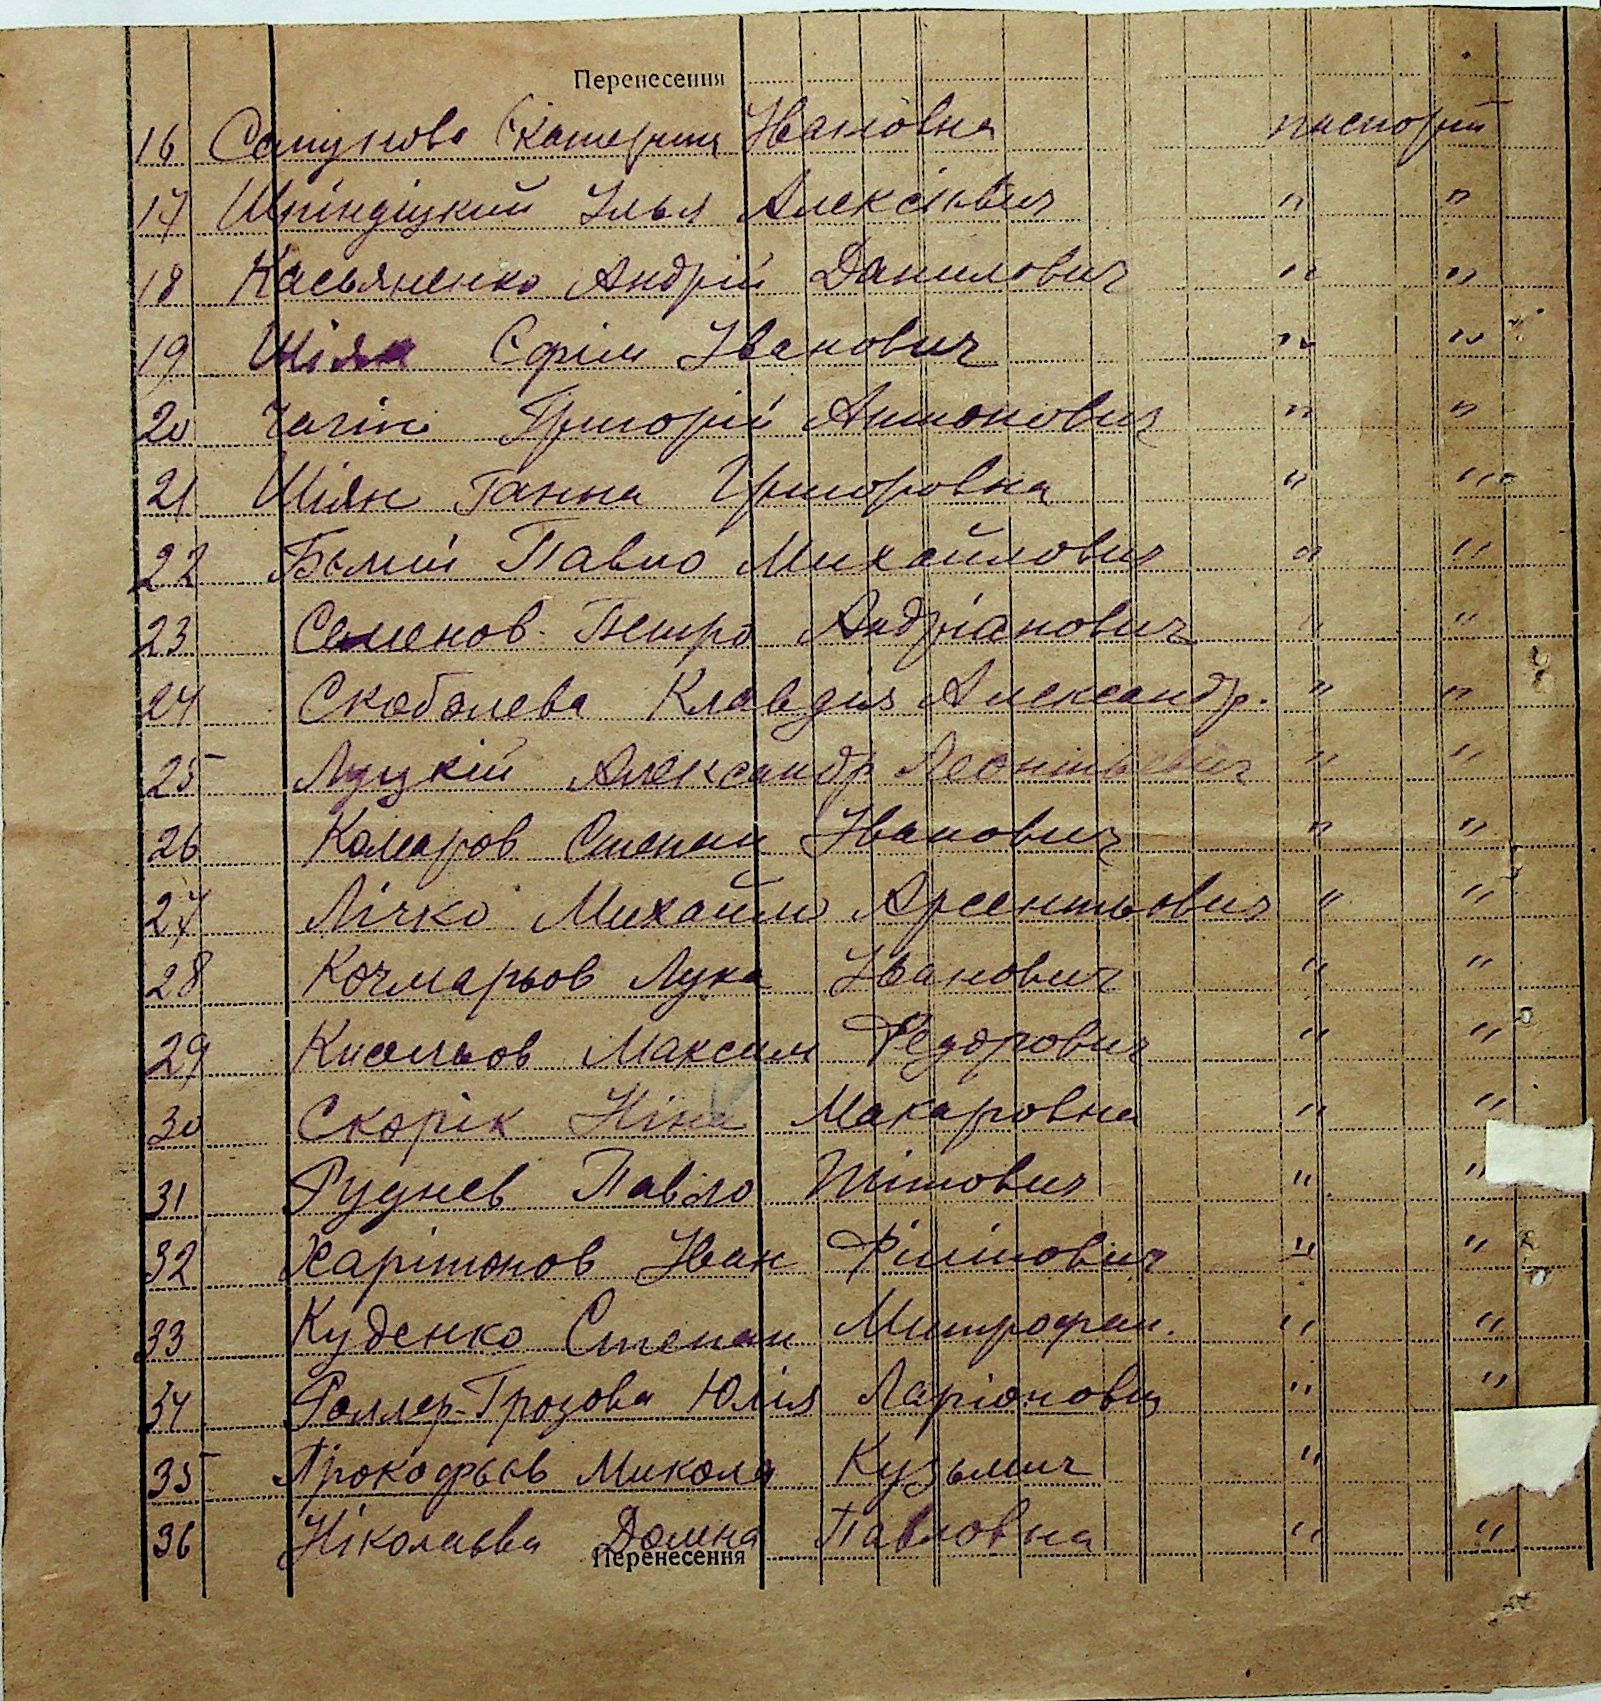 Перенесення
16 Сапунова Катерина Івановна паспорт
17 Шпіндіцкий Ілья Алексієвич " "
18 Касьяненко Андрій Данилович " "
19 Шіян Єфім Іванович " "
20 Чагін Григорій Антонович " "
21 Шіян Ганна Григоровна " "
22 Білий Павло Михайлович " "
23 Семенов Петро Андріанович " "
24 Скоболева Клавдия Александр. " "
25 Луцкій Александр Леонтьевич " "
26 Комаров Степан Іванович " "
27 Лічко Михайло Арсентьович " "
28 Кочмарьов Лука Іванович " "
29 Кисельов Максим Федорович " "
30 Скорік Ніна Макаровна " "
31 Руднєв Павло Тітович " "
32 Харітонов Іван Філіпович " "
33 Куденко Степан Митрофан. " "
34 Роллер-Грозова Юлія Ларіоновна " "
35 Прокофьєв Микола Кузьмич "
36 Ніколаєва Домна Павловна " "
Перенесення